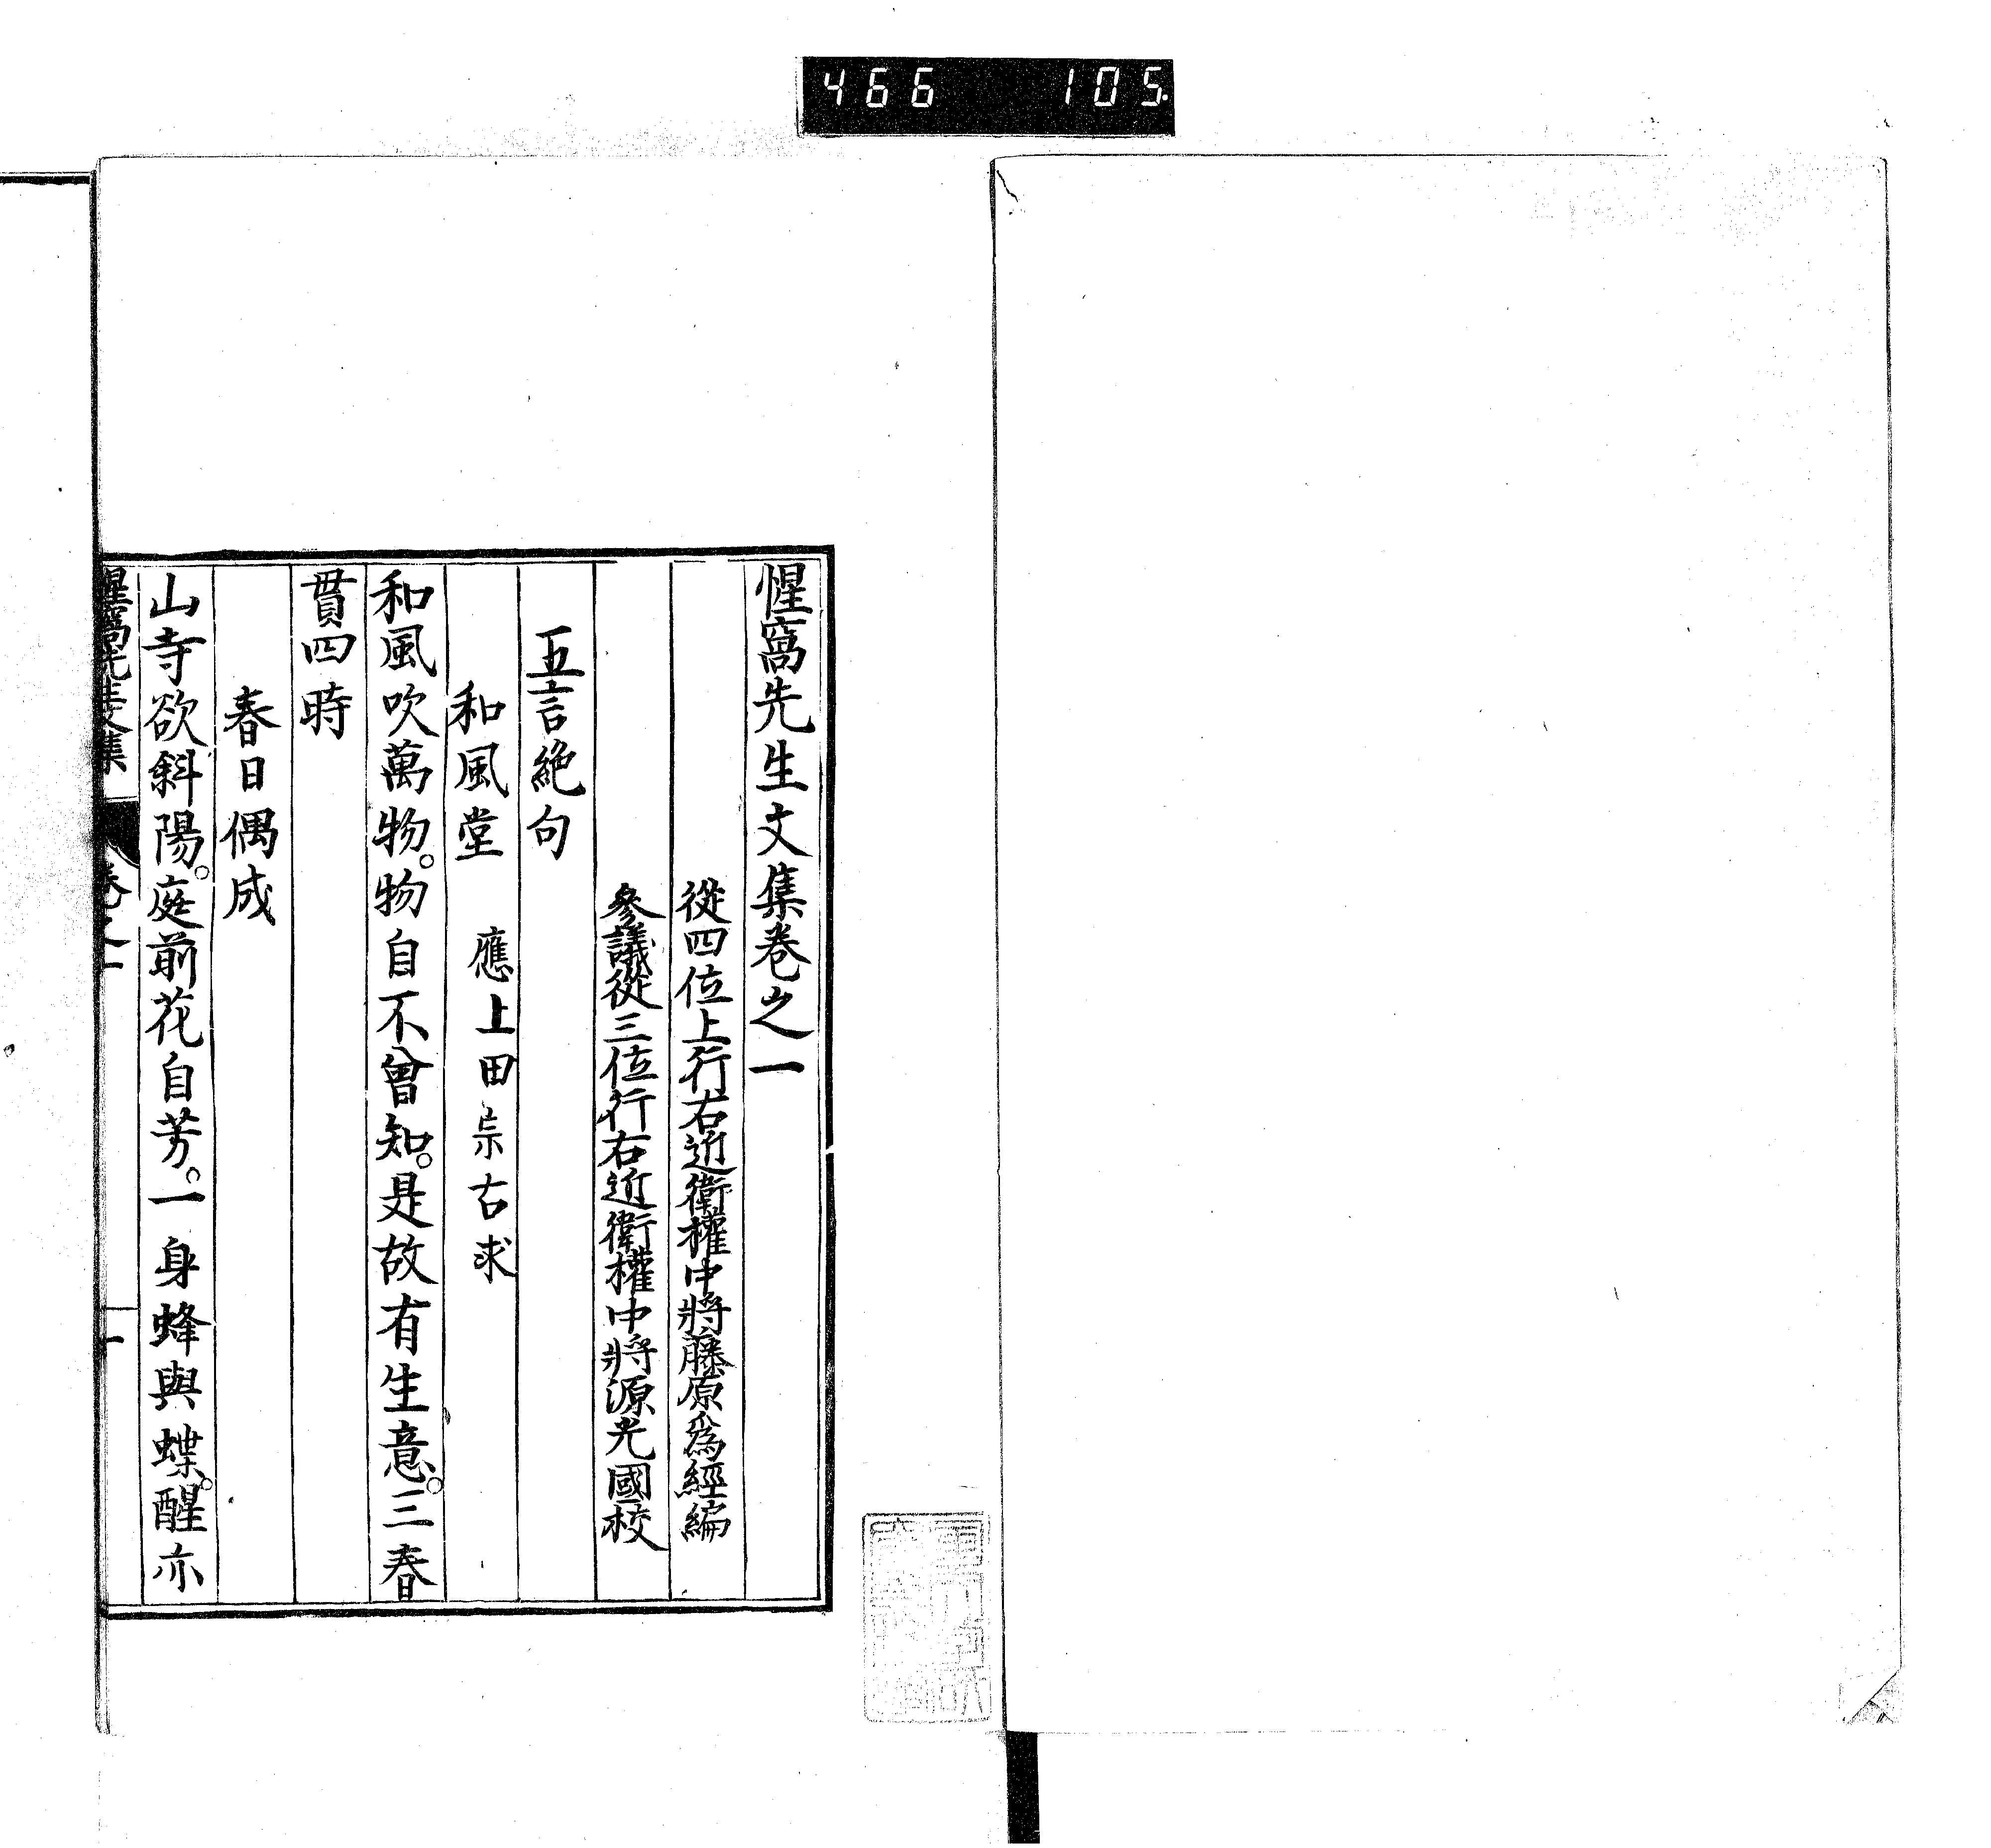 466 105
惺窩先生文集卷之一
從四位上行右近衛權中將藤原爲經編
參議從三位行右近衛權中將源光國校
五言絶句
和風堂 應上田宗古求
和風吹萬物。物自不曾知。是故有生意。三春
貫四時
春日偶成
山寺欲斜陽。庭前花自芳。一身蜂與蝶。醒亦
惺窩先生文集 卷之一 一